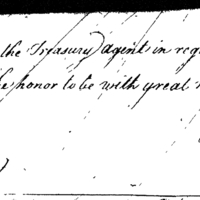 the Treasury) agent in reg
he honor to be with great
)